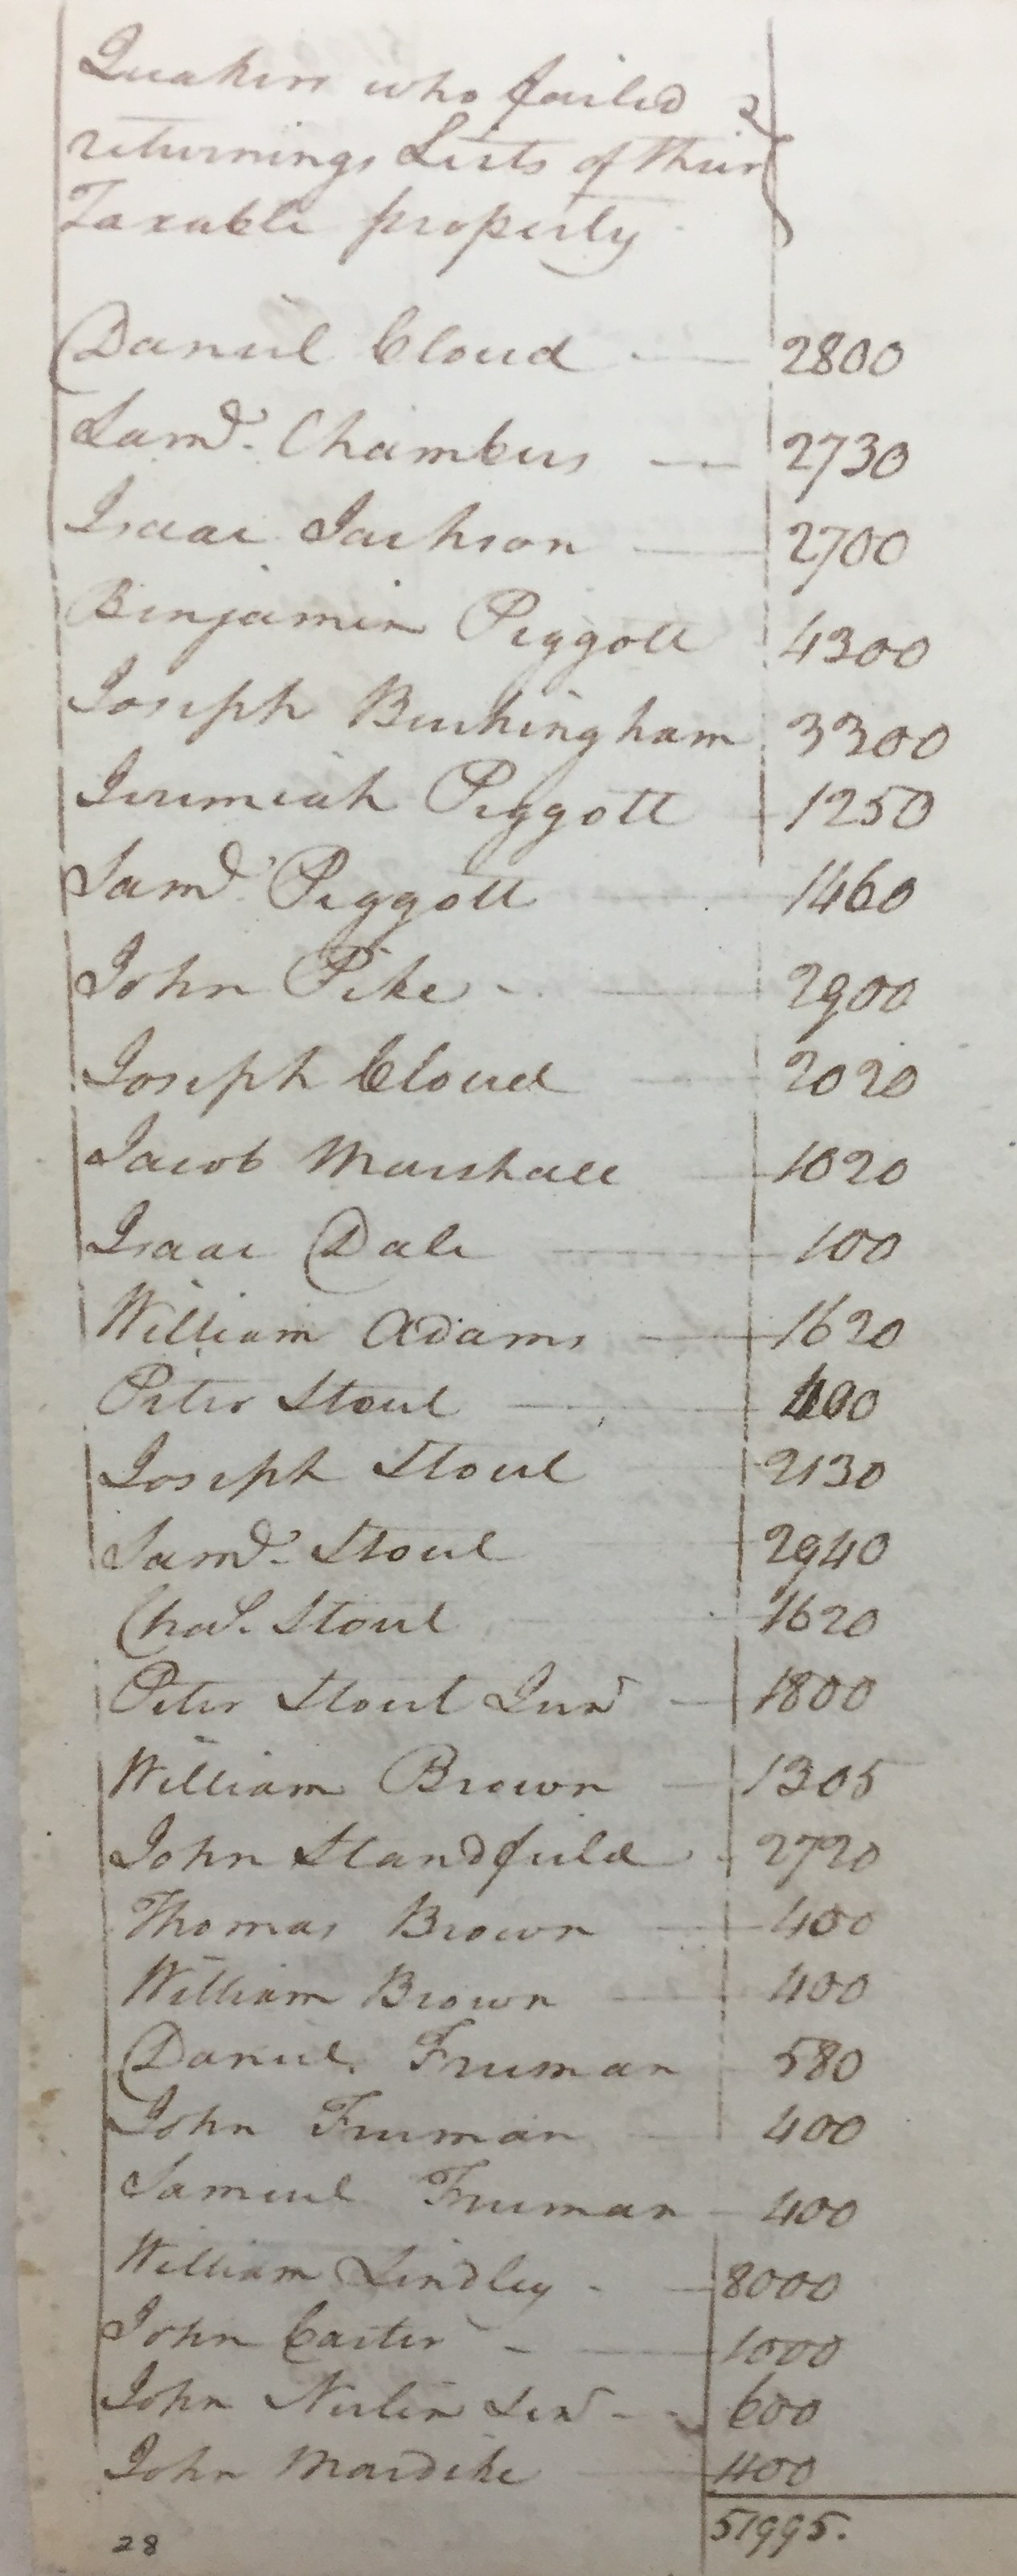 Quakers who failed
returnings Lists of their
Taxable property
Daniel Cloud 2800
Saml. Chambers 2730
Isaac Jackson 2700
Benjamin Piggott 4300
Joseph Buckingham 3300
Jeremiah Piggott 1250
Saml. Piggott 1460
John Pike - 2900
Joseph Cloud 2020
Jacob Marshall 1020
Isaac Dale 100
William Adams 1620
Peter Stout 400
Joseph Stout 2130
Saml. Stout 2940
Chas. Stout 1620
Peter Stout Junr 1800
William Brown 1305
John Standfield 2720
Thomas Brown 400
William Brown 400
Daniel Freeman 580
John Freeman 400
Samuel Freeman 400
William Lindley - 8000
John Carter - 1000
John Newlin Senr - 600
John Mardike 400
51995.
28